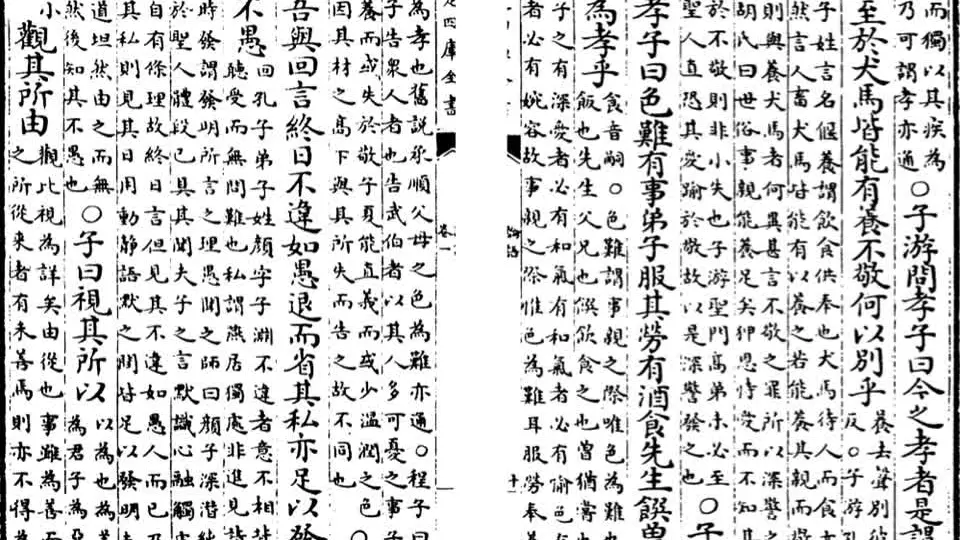 而獨以其疾為
乃可謂孝亦通○子游問孝子曰今之孝者是謂
至於犬馬皆能有養不敬何以別乎養去聲別彼
反○子游孔
子姓言名偃養謂飲食供奉也犬馬待人而食亦
然言人畜犬馬皆能有以養之若能養其親而
則與養犬馬者何異甚言不敬之罪所以深警之
胡氏曰世俗事親能養足矣狎恩恃愛而不知其
於不敬則非小失也子游聖門高弟未必至
聖人直恐其愛踰於敬故以是深警發之也○子
孝子曰色難有事弟子服其勞有酒食先生饌曽
為孝乎食音嗣○色難謂事親之際唯色為難
飯也先生父兄也饌飲食之也曽猶嘗也
子之有深愛者必有和氣有和氣者必有愉色有
者必有婉容故事親之際惟色為難耳服勞奉養
論語
十一
定四庫全書
卷一
為孝也舊說承順父母之色為難亦通○程子曰
子告衆人者也告武伯者以其人多可憂之事子
養而或失於敬子夏能直義而或少溫潤之色○
因其材之高下與其所失而告之故不同也
吾與回言終日不違如愚退而省其私亦足以發
不愚回孔子弟子姓顏字子淵不違者意不相背
聽受而無問難也私謂燕居獨處非進見請
時發謂發明所言之理愚聞之師曰顏子深潛純
於聖人體段已具其聞夫子之言默識心融觸處
自有條理故終日言但見其不違如愚人而已
其私則見其日用動靜語默之間皆足以發明
道坦然由之而無
然後知其不愚也○子曰視其所以以為也為
為君子為惡
小
觀其所由觀比視為詳矣由從也事雖為善
之所從來者有未善焉則亦不得為